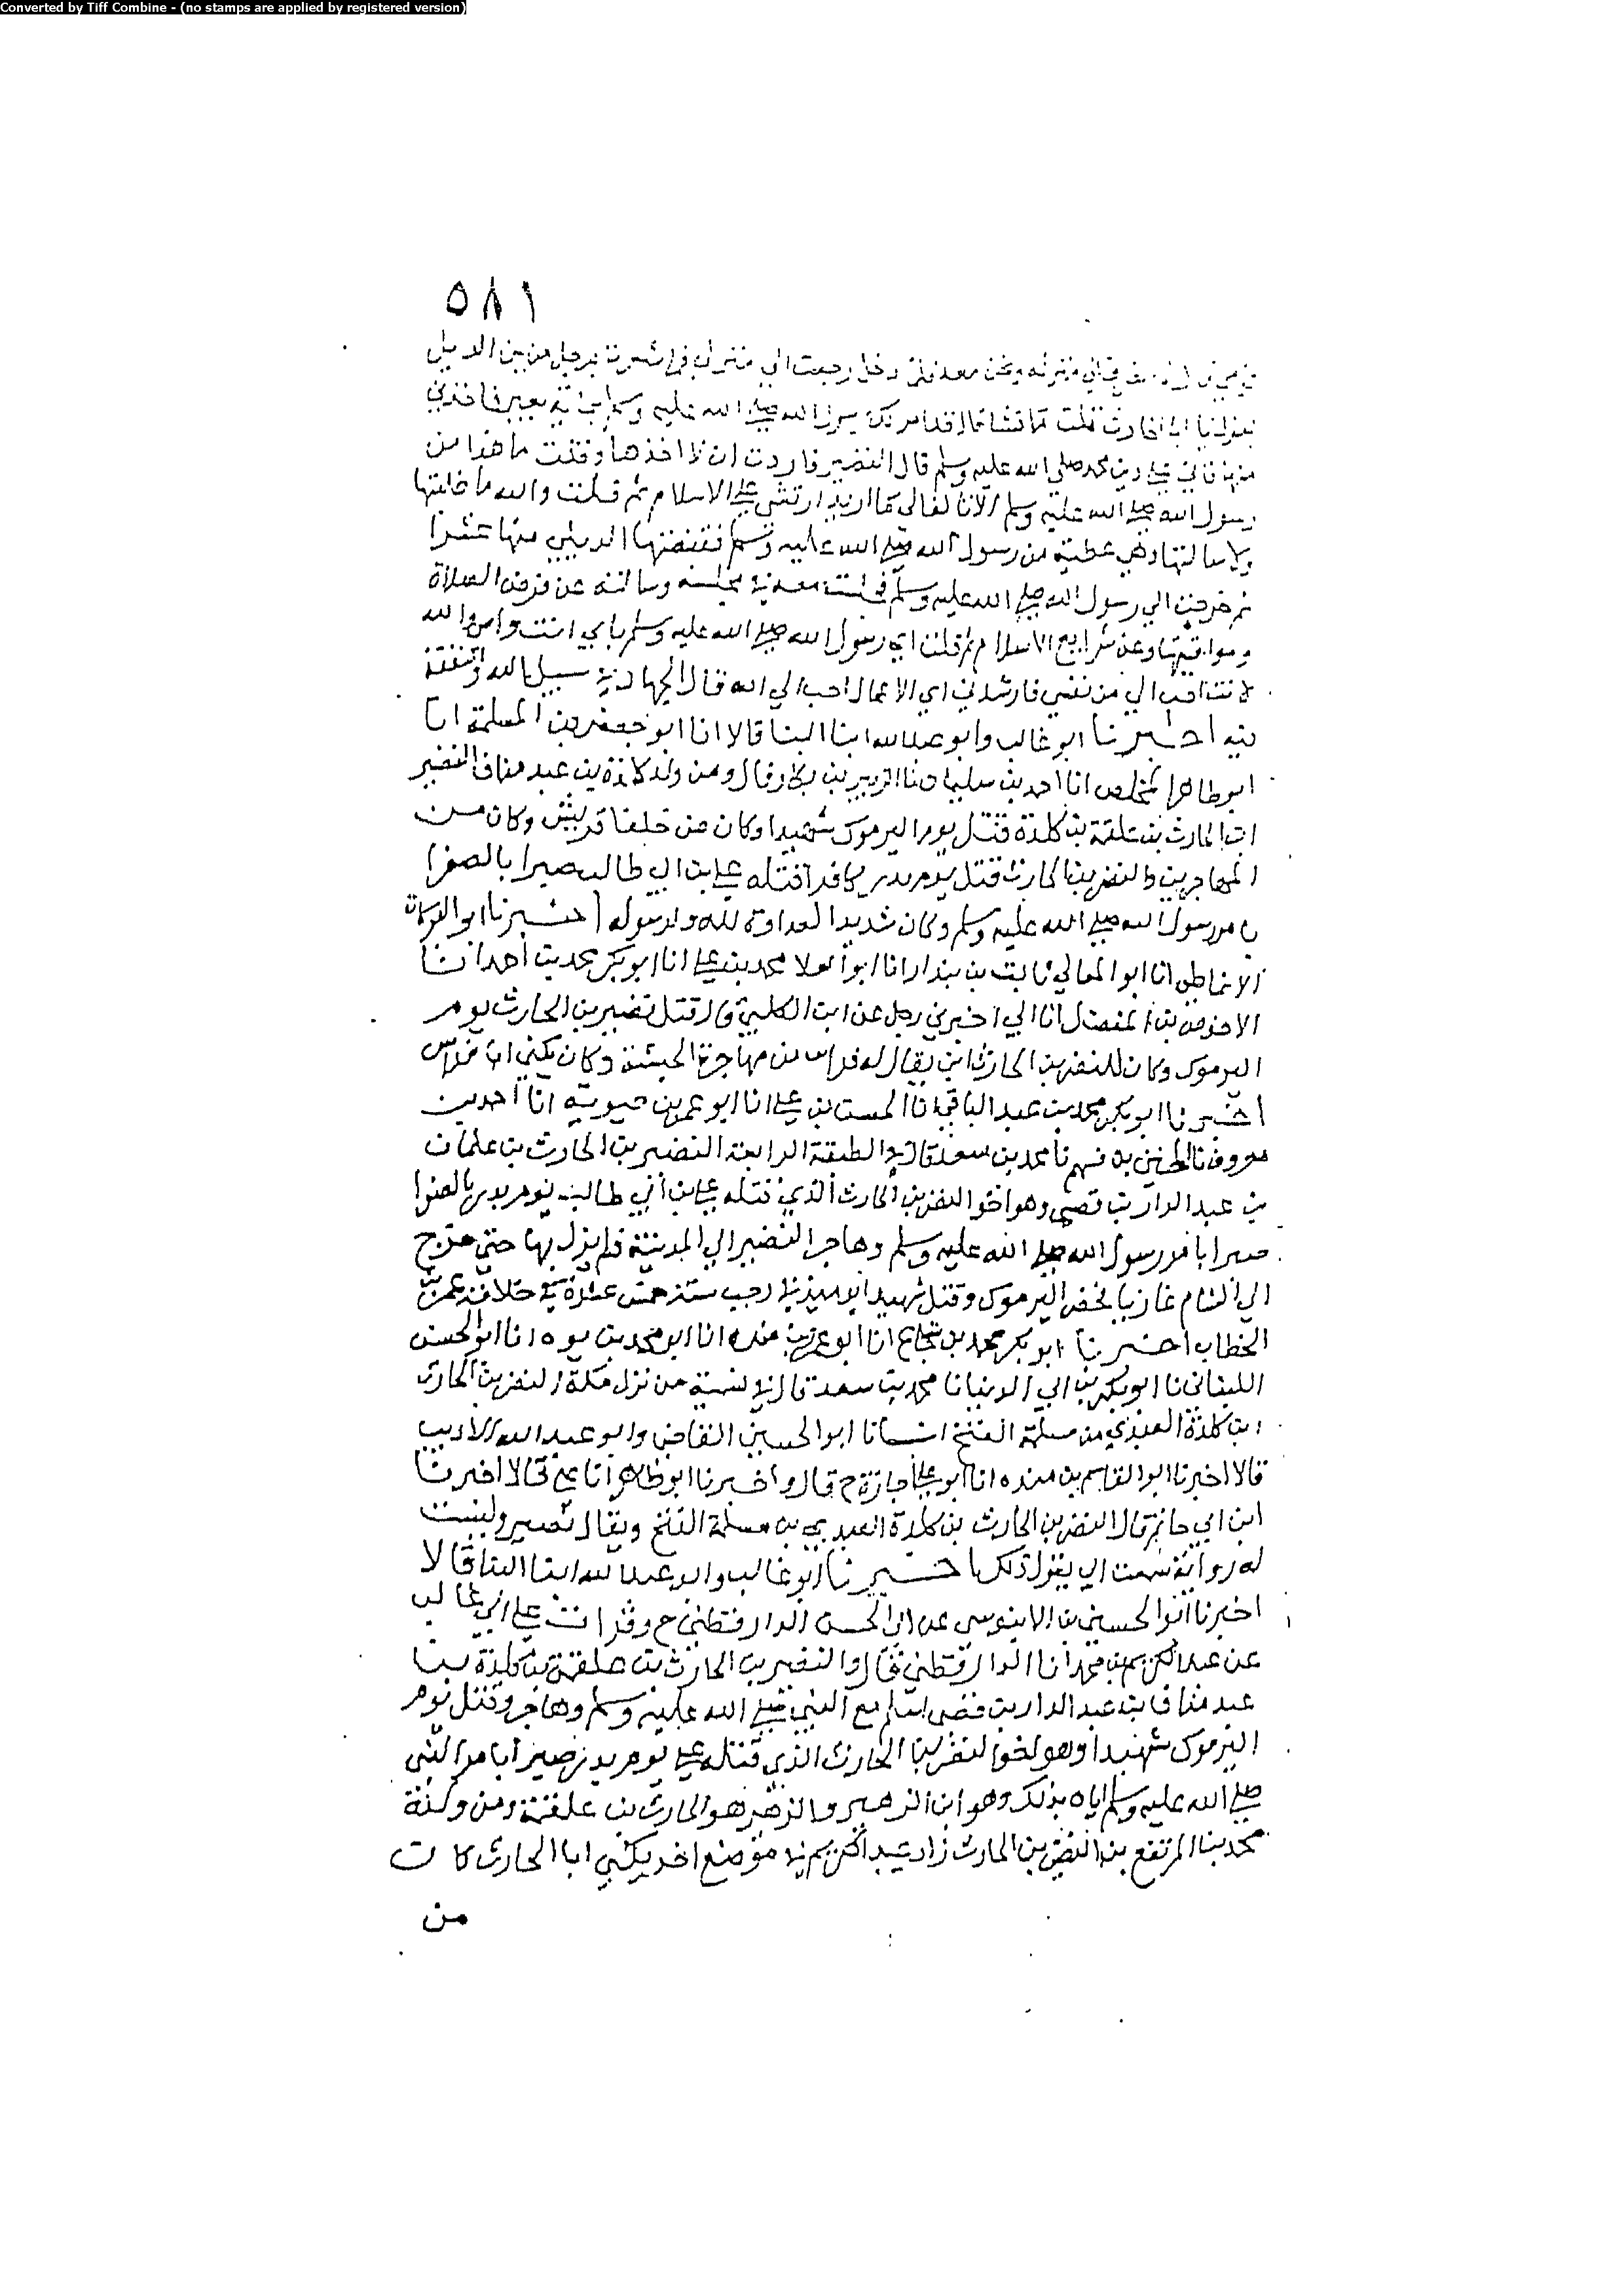 Converted by Tiff Combine - (no stamps are applied by registered version)
٥٨١
منزله ونحن معه فلما دخل رجعت الي منزلي فما شعرت برجل من بني الديل
يقول يا ابا الحارث فقلت ما تشا قال قد امر لك رسول الله صلى الله عليه وسلم بماية بعير فاخذني
منها فاني علي دين محمد صلي الله عليه وسلم قال النضير فاردت ان لا اخذها وقلت ما هذا من
رسول الله صلى الله عليه وسلم الا تالفا لي ما اريد ارتشي علي الاسلام ثم قلت والله ما طلبتها
ولا سالتها وهي عطية من رسول الله صلى الله عليه وسلم فقبضتها الديلي منها عشرا
ثم خرجت الي رسول الله صلى الله عليه وسلم فجلست معه في مجلسه وسالته عن فرض الصلاة
ومواقيتها وعن شرايع الاسلام ثم قلت اي رسول الله صلى الله عليه وسلم بابي انت وامي والله
لانت احب الي من نفسي فارشدني اي الاعمال احب الي الله قال الجهاد في سبيل الله والنفقة
فيه اخبرنا ابو غالب وابو عبدالله ابنا البنا قالا انا ابو جعفر بن المسلمة انا
ابو طاهر المخلص انا احمد بن سليمان نا الزبير بن بكار قال ومن ولد كلدة بن عبد مناف النضير
ابن الحارث بن علقمة بن كلدة قتل يوم اليرموك شهيدا وكان من حلفا قريش وكان من
المهاجرين والنضر بن الحارث قتل يوم بدر كافرا قتله علي بن ابي طالب صبرا بالصفرا
بامر رسول الله صلى الله عليه وسلم وكان شديد العداوة لله ولرسوله اخبرنا ابو البركات
الانماطي انا ابو المعالي ثابت بن بندار انا ابو العلا محمد بن علي انا ابو بكر محمد بن احمد انا
الاحوص بن المفضل انا ابي اخبرني رجل عن ابن الكلبي قال قتل نضير بن الحارث يوم
اليرموك وكان للنضر بن الحارث ابن يقال له فراس من مهاجرة الحبشة وكان يكني ابا فراس
اخبرنا ابو بكر محمد بن عبد الباقي انا الحسن بن علي انا ابو عمر بن حيوية انا احمد بن
معروف نا الحسين بن فهم نا محمد بن سعد قال في الطبقة الرابعة النضير بن الحارث بن علقمة
بن عبد الدار بن قصي وهو اخو النضر بن الحارث الذي قتله علي بن ابي طالب يوم بدر بالصفرا
صبرا بامر رسول الله صلى الله عليه وسلم وهاجر النضير الي المدينة فلم يزل بها حتي خرج
الي الشام غازيا فحضر اليرموك وقتل شهيدا يوميذ في رجب سنة خمس عشرة في خلافة عمر بن
الخطاب اخبرنا ابو بكر محمد بن شجاع انا ابو عمرو بن منده انا ابو محمد بن يوه انا ابو الحسن
اللبناني نا ابو بكر بن ابي الدنيا نا محمد بن سعد قال في تسمية من نزل مكة النضر بن الحارث
ابن كلدة العبدي من مسلمة الفتح انبانا ابو الحسين القاضي وابو عبد الله الاديب
قالا اخبرنا ابو القاسم بن منده انا ابو علي اجازة ح قال واخبرنا ابو طاهر انا علي قالا اخبرنا
ابن ابي حاتم قال النضر بن الحارث بن كلدة العبدري من مسلمة الفتح ويقال نضير وليست
له رواية سمعت ابي يقول ذلك اخبرنا ابو غالب وابو عبدالله ابنا البنا قالا
اخبرنا ابو الحسين بن الابنوسي عن ابي الحسن الدارقطني ح وقرات علي ابي غالب
عن عبد الكريم بن محمد انا الدارقطني قال والنضير بن الحارث بن علقمة بن كلدة بن
عبد مناف بن عبد الدار بن قصي اسلم مع النبي صلى الله عليه وسلم وهاجر وقتل يوم
اليرموك شهيدا وهو اخو النضر بن الحارث الذي قتله علي يوم بدر صبرا بامر النبي
صلى الله عليه وسلم اياه بذلك وهو ابن الرهين والرهين هو الحارث بن علقمة ومن ولده
محمد بن المرتفع بن النضير بن الحارث زاد عبد الكريم في موضع اخر يكني ابا الحارث كان
من